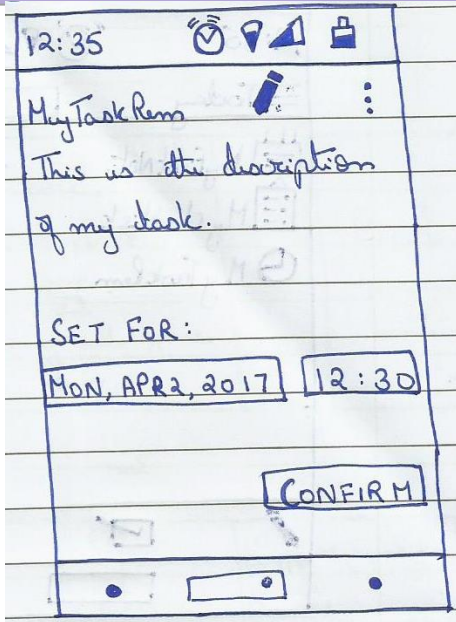 12:35
MyTaskRem
This is the description
of my task.
SET FOR:
MON, APR 2, 2017 12:30
CONFIRM